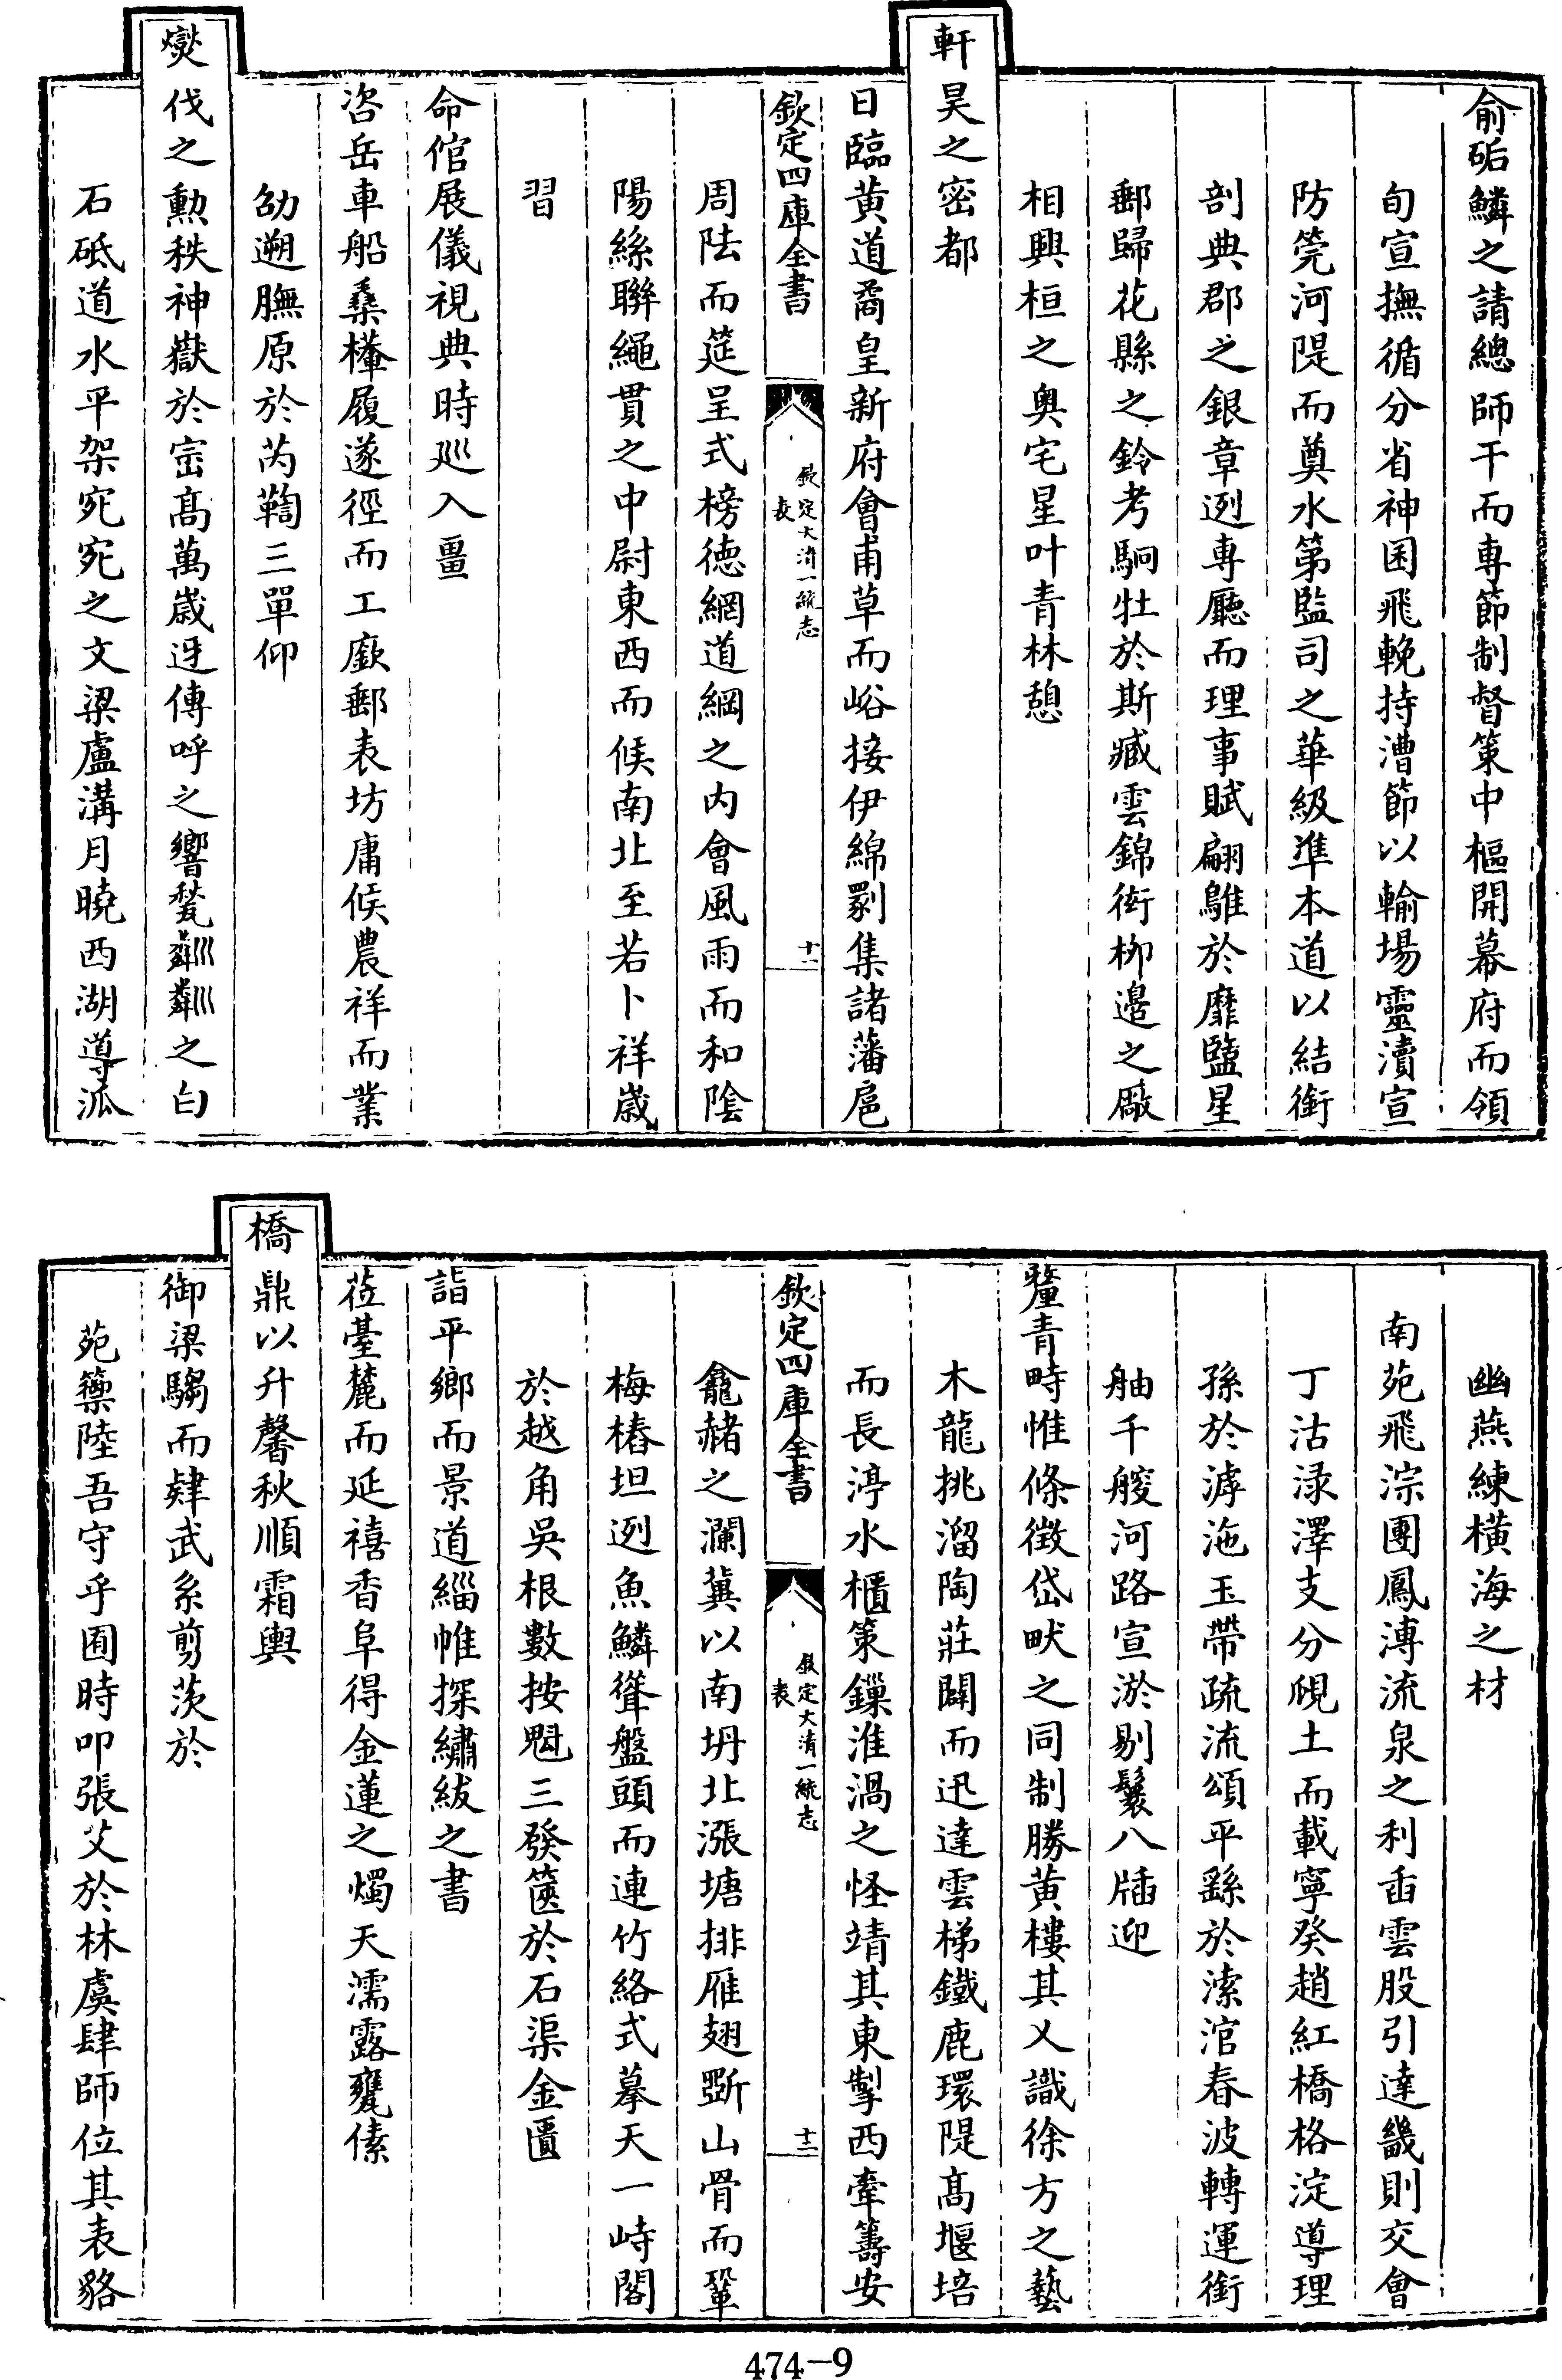 俞砳鱗之請總師干而專節制督策中樞開幕府而領
旬宣撫循分省神囷飛輓持漕節以輸場靈瀆宣
防筦河隄而奠水第監司之華級準本道以結銜
剖典郡之銀章迾專廳而理事賦翩鵻於靡盬星
郵歸花縣之鈴考駉牡於斯臧雲錦衘栁邉之廠
相興桓之奥宅星叶青林憩
軒昊之密都
日臨黄道矞皇新府會甫草而峪接伊綿罽集諸藩扈
欽定四庫全書
欽定大清一統志
表
十一
周阹而筵呈式榜徳網道綱之内會風雨而和隂
陽絲聯繩貫之中尉東西而候南北至若卜祥嵗
習
命倌展儀視典時廵入畺
咨岳車船桑橏履遂徑而工廞郵表坊庸候農祥而業
劭遡膴原於芮鞫三單仰
爕伐之勲秩神嶽於宻髙萬嵗迓傳呼之響甃粼粼之白
石砥道水平架宛宛之文梁盧溝月曉西湖導泒
幽燕練横海之材
南苑飛淙團鳳溥流泉之利臿雲股引達畿則交會
丁沽渌澤支分覛土而載寧癸趙紅橋格淀導理
孫於滹沲玉帶疏流頌平繇於溹涫春波轉運銜
舳千艘河路宣淤剔鬟八牐迎
釐青畤惟條徴岱畎之同制勝黄樓其乂識徐方之藝
木龍挑溜陶莊闢而迅達雲梯鐵鹿環隄髙堰培
而長渟水櫃策鏁淮渦之怪靖其東掣西牽籌安
欽定四庫全書
欽定大清一統志
表
十二
龕赭之瀾冀以南坍北漲塘排雁翅斵山骨而鞏
梅樁坦迾魚鱗聳盤頭而連竹絡式摹天一峙閣
於越角吳根數按魁三發篋於石渠金匱
詣平鄉而景道緇帷探繡紱之書
莅臺麓而延禧香阜得金蓮之燭天濡露甕傃
橋鼎以升馨秋順霜輿
御梁騶而肄武糸剪茨於
苑籞陸吾守乎囿時叩張艾於林虞肆師位其表貉
474—9